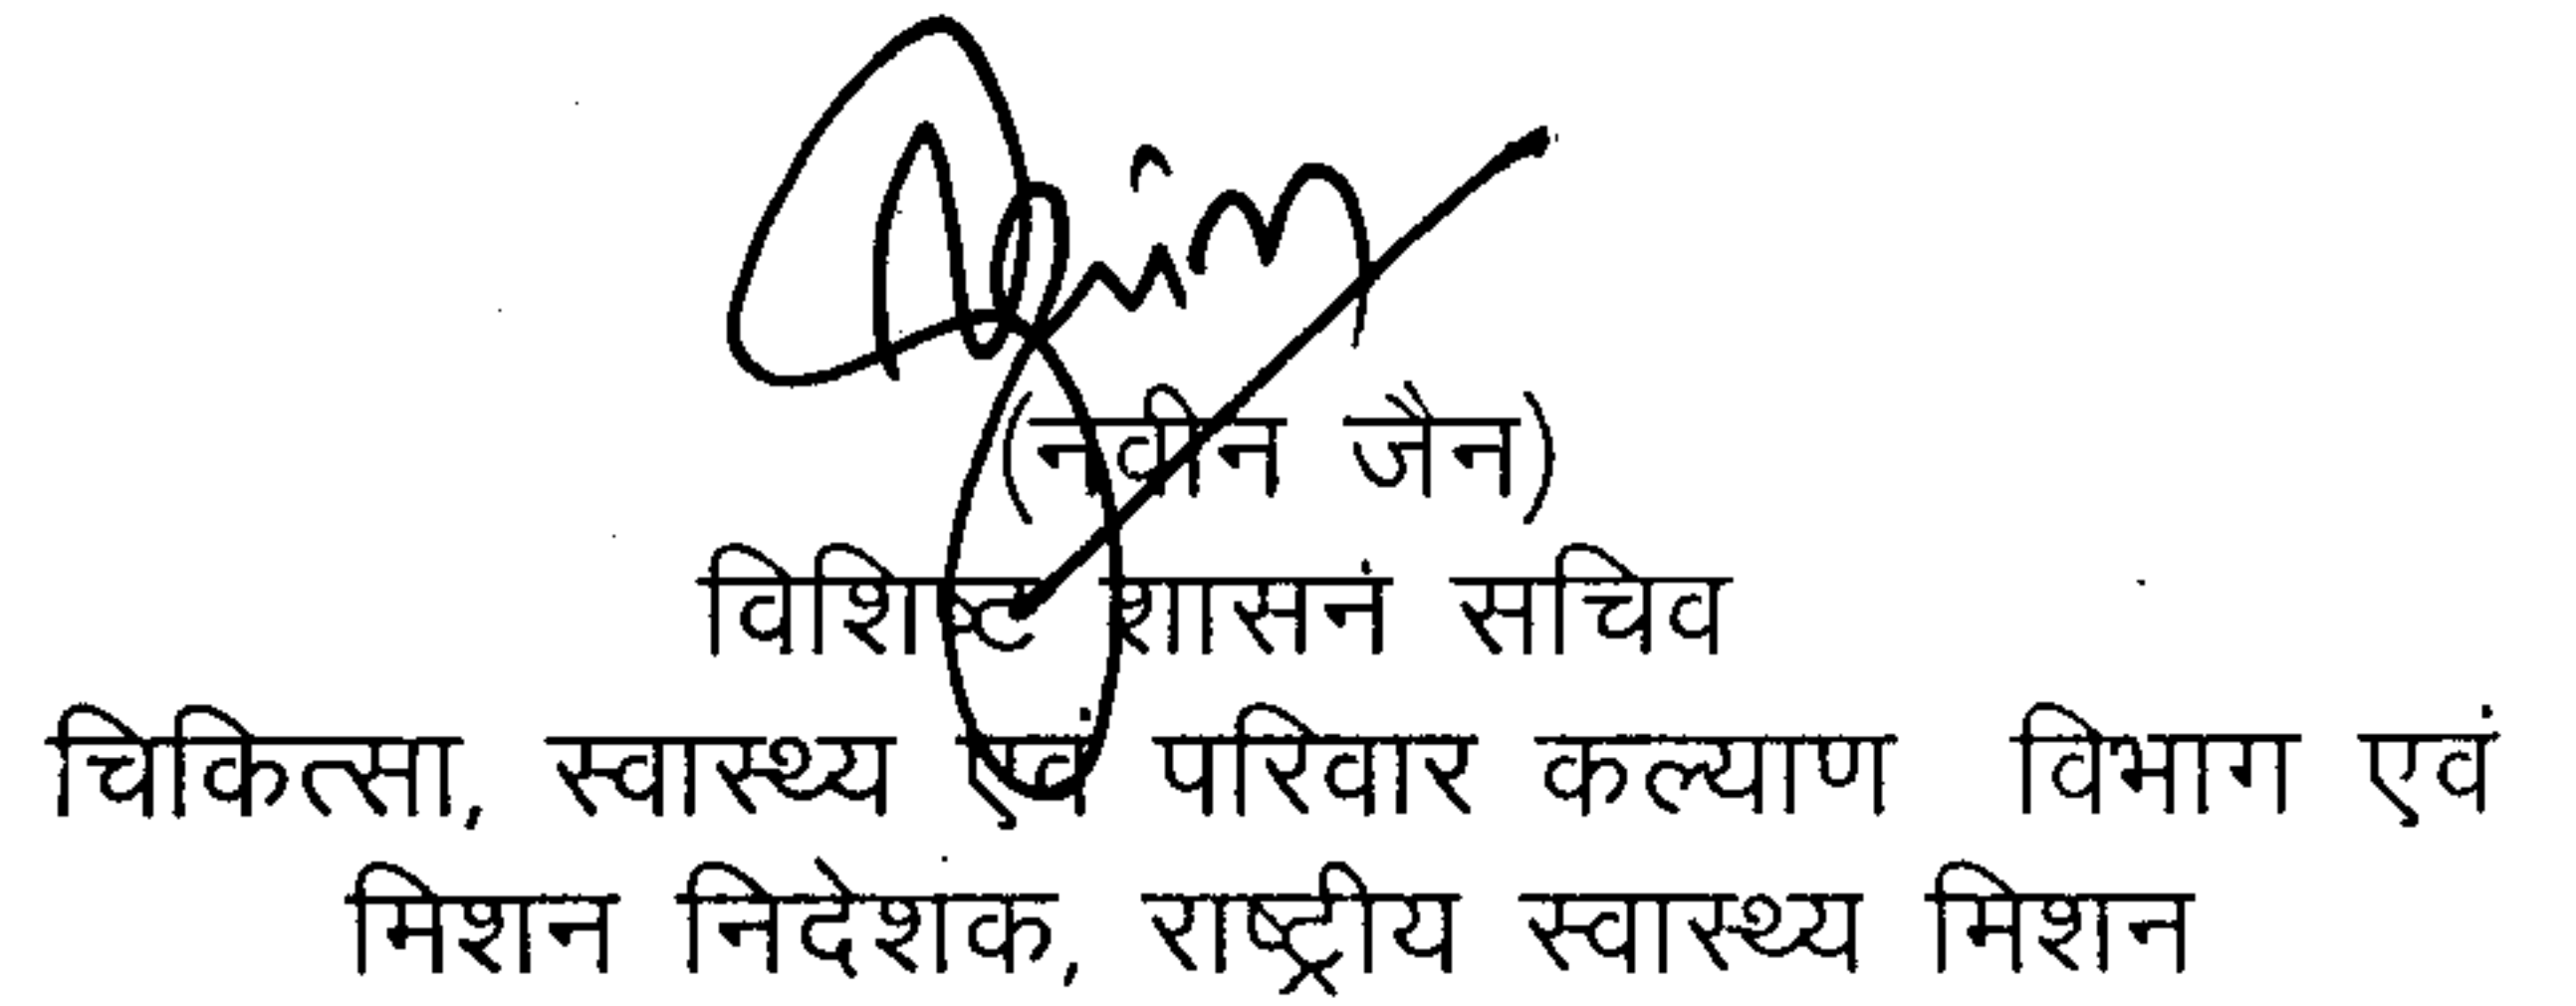 (नवीन जैन)
विशिष्ट शासन सचिव
चिकित्सा, स्वास्थ्य एवं परिवार कल्याण विभाग एवं
मिशन निदेशक, राष्ट्रीय स्वास्थ्य मिशन